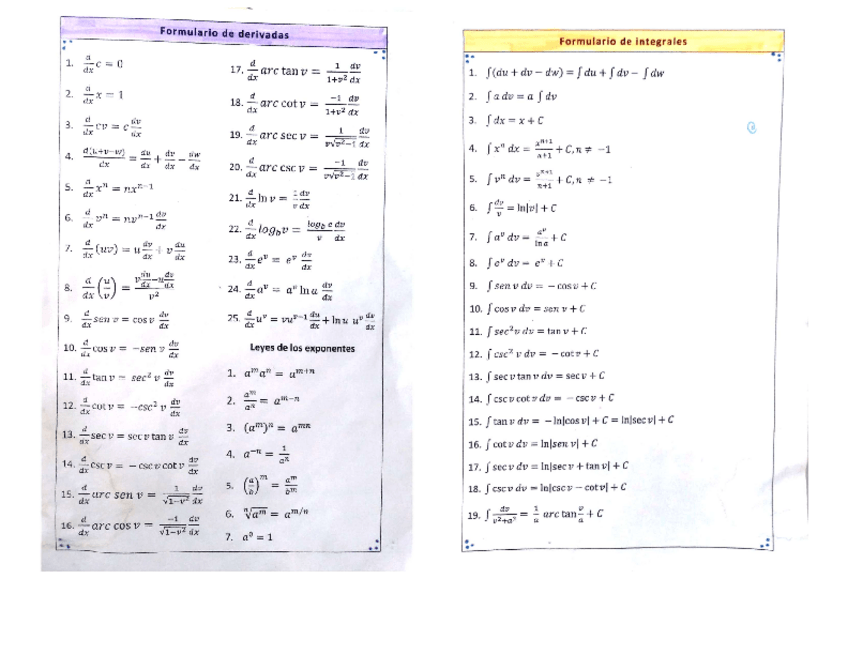 Formulario de derivadas
1. d/dx c = 0
2. d/dx x = 1
3. d/dx cv = c dv/dx
4. d(u+v−w)/dx = du/dx + dv/dx − dw/dx
5. d/dx xⁿ = nxⁿ⁻¹
6. d/dx vⁿ = nvⁿ⁻¹ dv/dx
7. d/dx (uv) = u dv/dx + v du/dx
8. d/dx (u/v) = (v du/dx − u dv/dx)/v²
9. d/dx sen v = cos v dv/dx
10. d/dx cos v = −sen v dv/dx
11. d/dx tan v = sec² v dv/dx
12. d/dx cot v = −csc² v dv/dx
13. d/dx sec v = sec v tan v dv/dx
14. d/dx csc v = − csc v cot v dv/dx
15. d/dx arc sen v = 1/√(1−v²) dv/dx
16. d/dx arc cos v = −1/√(1−v²) dv/dx
17. d/dx arc tan v = 1/(1+v²) dv/dx
18. d/dx arc cot v = −1/(1+v²) dv/dx
19. d/dx arc sec v = 1/(v√(v²−1)) dv/dx
20. d/dx arc csc v = −1/(v√(v²−1)) dv/dx
21. d/dx ln v = 1/v dv/dx
22. d/dx log_b v = (log_b e)/v dv/dx
23. d/dx eᵛ = eᵛ dv/dx
24. d/dx aᵛ = aᵛ ln a dv/dx
25. d/dx uᵛ = vuᵛ⁻¹ du/dx + ln u uᵛ dv/dx
Leyes de los exponentes
1. aᵐaⁿ = aᵐ⁺ⁿ
2. aᵐ/aⁿ = aᵐ⁻ⁿ
3. (aᵐ)ⁿ = aᵐⁿ
4. a⁻ⁿ = 1/aⁿ
5. (a/b)ᵐ = aᵐ/bᵐ
6. ⁿ√aᵐ = a^(m/n)
7. a⁰ = 1
Formulario de integrales
1. ∫(du + dv − dw) = ∫ du + ∫ dv − ∫ dw
2. ∫ a dv = a ∫ dv
3. ∫ dx = x + C
4. ∫ xⁿ dx = xⁿ⁺¹/(n+1) + C, n ≠ −1
5. ∫ vⁿ dv = vⁿ⁺¹/(n+1) + C, n ≠ −1
6. ∫ dv/v = ln|v| + C
7. ∫ aᵛ dv = aᵛ/ln a + C
8. ∫ eᵛ dv = eᵛ + C
9. ∫ sen v dv = − cos v + C
10. ∫ cos v dv = sen v + C
11. ∫ sec² v dv = tan v + C
12. ∫ csc² v dv = − cot v + C
13. ∫ sec v tan v dv = sec v + C
14. ∫ csc v cot v dv = − csc v + C
15. ∫ tan v dv = −ln|cos v| + C = ln|sec v| + C
16. ∫ cot v dv = ln|sen v| + C
17. ∫ sec v dv = ln|sec v + tan v| + C
18. ∫ csc v dv = ln|csc v − cot v| + C
19. ∫ dv/(v²+a²) = 1/a arc tan v/a + C